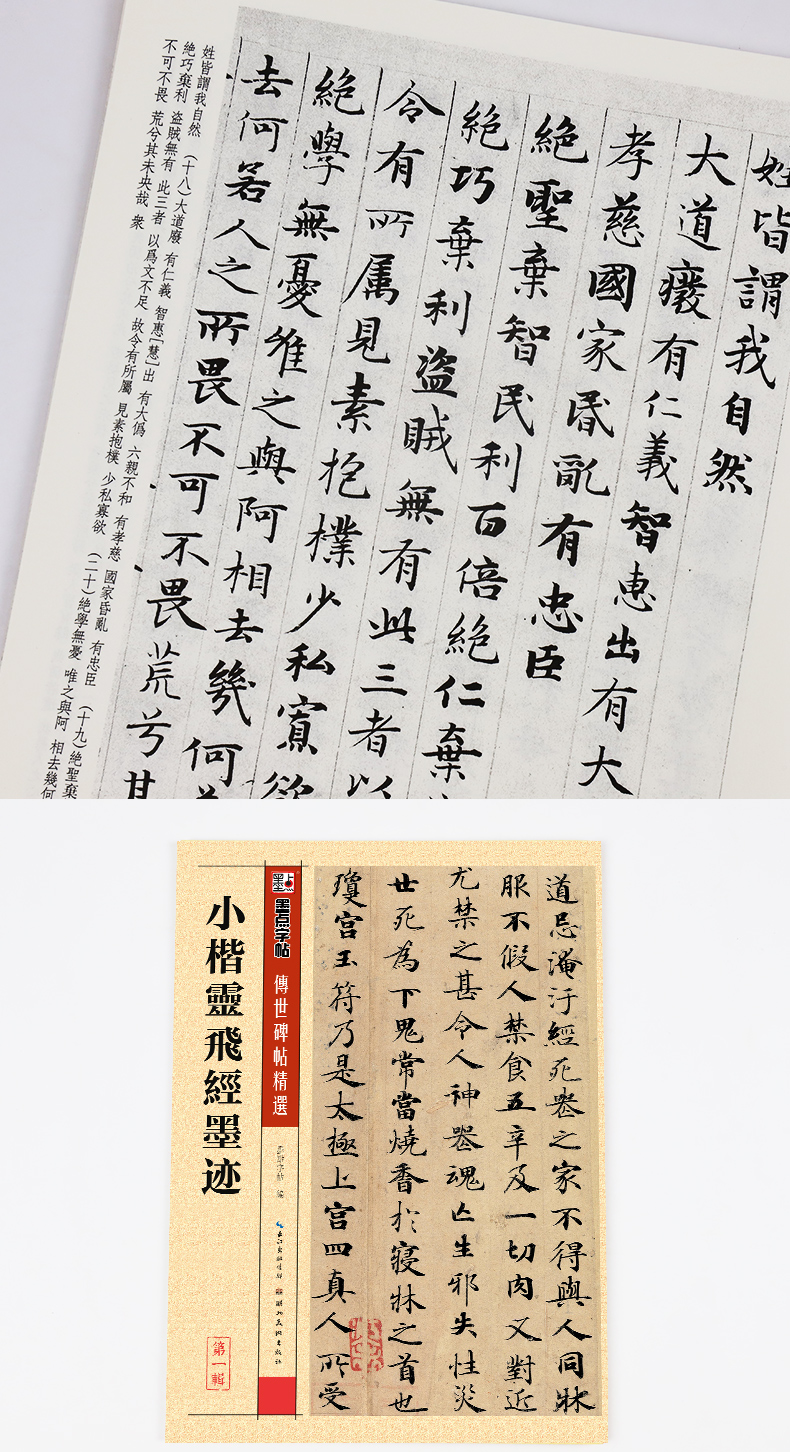 姓皆謂我自然
大道癈有仁義智惠出有大
孝慈國家昬亂有忠臣
絕聖棄智民利百倍絕仁棄
絕巧棄利盜賊無有此三者以
令有所属見素抱樸少私寡欲
絕學無憂唯之與阿相去幾何
去何若人之所畏不可不畏荒兮其
姓皆謂我自然 （十八）大道廢 有仁義 智惠[慧]出 有大僞 六親不和 有孝慈 國家昏亂 有忠臣 （十九）絕聖棄
絕巧棄利 盜賊無有 此三者 以爲文不足 故令有所屬 見素抱樸 少私寡欲 （二十）絕學無憂 唯之與阿 相去幾何
不可不畏 荒兮其未央哉 衆
道忌淹汙經死喪之家不得與人同牀
服不假人禁食五辛及一切肉又對近
尤禁之甚令人神喪魂亡生邪失性災
世死為下鬼常當燒香於寢牀之首也
瓊宮玉符乃是太極上宮四真人所受
墨点
墨点字帖
傳世碑帖精選
墨点字帖 编
长江出版传媒
湖北美术出版社
小楷靈飛經墨迹
第一輯